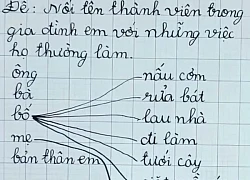 Đề: Nối tên thành viên trong
gia đình em với những việc
họ thường làm.
ông
nấu cơm
bà
rửa bát
bố
lau nhà
mẹ
đi làm
bản thân em
tưới cây